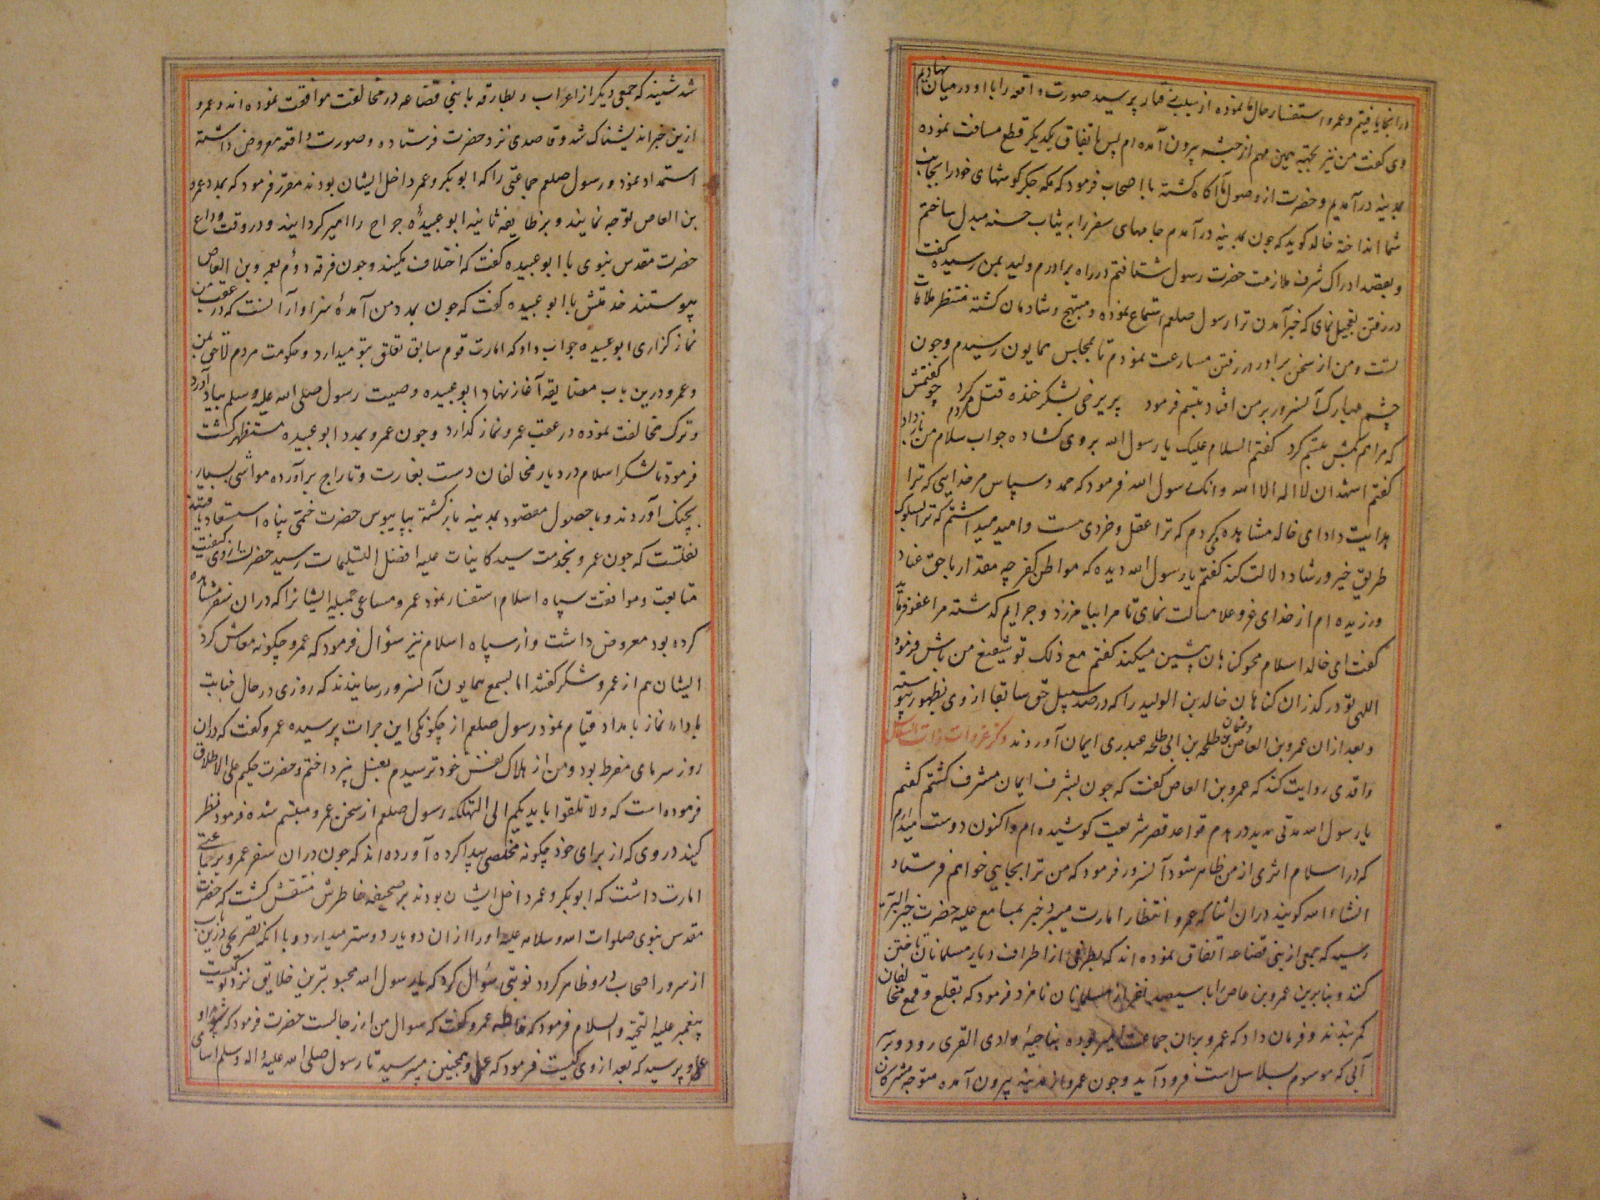 در انجا یافتیم و عمرو استفسار حال ما نموده از سبب رفتار پرسید صورت واقعه را با او در میان نهادیم
وی گفت من نیز بجهة همین مهم از حبشه بیرون آمده ام پس باتفاق یکدیگر قطع مسافت نموده
بمدینه درآمدیم و حضرت از وصول ما آگاه کشته با اصحاب فرمود که مکه جگر گوشهای خود را بجانب
شما انداخته خالد گوید که چون بمدینه درآمدم جامهای سفر را به ثیاب حسنه مبدل ساختم
و بقصد ادراک شرف ملازمت حضرت رسول شتافتم در راه برادرم ولید بمن رسیده گفت
در رفتن تعجیل نمای که خبر آمدن ترا رسول صلعم استماع نموده و مبتهج و شادمان کشته منتظر ملاقات
تست و من از سخن برادر در رفتن مسارعت نمودم تا بمجلس همایون رسیدم و چون
چشم مبارک آنسرور بر من افتاد تبسم فرمود پریرخی بشکر خنده قتل مردم کرد چو کفتمش
که مرا هم بکش تبسم کرد گفتم السلام علیک یا رسول الله بروی کشاده جواب سلام من باز داد
گفتم اشهد ان لا اله الا الله وانک رسول الله فرمود که حمد و سپاس مر خدایی که ترا
هدایت داد ای خالد مشاهده میکردم که ترا عقل و خردی هست و امید میداشتم که ترا بسلوک
طریق خیر و رشاد دلالت کند گفتم یا رسول الله دیده که مواطن کفر چه مقدار با حق عناد
ورزیده ام از خدای عز و علا مسالت نمای تا مرا بیامرزد و جرایم گذشته مرا عفو فرماید
گفت ای خالد اسلام محو گناهان پیشین میکند گفتم مع ذلک تو شفیع من باش فرمود
اللهی تو در گذران گناهان خالد بن الولید را که در صد سبیل حق سابقا از وی بظهور پیوسته
و بعد از ان عمرو بن العاص و عثمان بن طلحه بن ابی طلحه عبدری ایمان آوردند ذکر غزوات ذات السلاسل
واقدی روایت کند که عمرو بن العاص گفت که چون بشرف ایمان مشرف کشتم گفتم
یا رسول الله مدتی مدید در هدم قواعد قصر شریعت کوشیده ام و اکنون دوست میدارم
که در اسلام اثری از من ظاهر شود آنسرور فرمود که من ترا بجایی خواهم فرستاد
انشاء الله گویند در ان اثنا که عمرو انتظار امارت میبرد خبر بمسامع علیه حضرت خیر البریه
رسید که جمعی از بنی قضاعه اتفاق نموده اند که بطرفی از اطراف دیار مسلمانان تاختن
کنند و بنابرین عمرو بن عاص را با سیصد نفر از مسلمانان نامزد فرمود که بقلع و قمع مخالفان
کمر بندند و فرمان داد که عمرو بران جماعت امیر بوده بناحیهٔ وادی القری رود و بر سر
آبی که موسوم بسلاسل است فرود آید و چون عمرو از مدینه بیرون آمده متوجه مشرکان
شد شنید که جمعی دیگر از اعراب و بطارقه با بنی قضاعه در مخالفت موافقت نموده اند و عمرو
ازین خبر اندیشناک شد و قاصدی نزد حضرت فرستاده و صورت واقعه معروض داشته
استمداد نمود و رسول صلعم جماعتی را که ابوبکر و عمر داخل ایشان بودند مقرر فرمود که بمدد عمرو
بن العاص توجه نمایند و بر طایفه ثانیه ابو عبیدهٔ جراح را امیر گردانیند و در وقت وداع
حضرت مقدس نبوی با ابو عبیده گفت که اختلاف مکنید و چون فرقه دوم بعمرو بن العاص
پیوستند خدمتش با ابو عبیده گفت که چون بمدد من آمدهٔ سزاوار آنست که در عقب من
نماز گزاری ابو عبیده جواب داد که امارت قوم سابق تعلق بتو میدارد و حکومت مردم لاحق بمن
و عمرو درین باب مضایقه آغاز نهاد ابو عبیده وصیت رسول صلی الله علیه وسلم بیاد آورد
و ترک مخالفت نموده در عقب عمرو نماز گذارد و چون عمرو بمدد ابو عبیده مستظهر گشت
فرمود تا لشکر اسلام در دیار مخالفان دست بغارت و تاراج برآورده مواشی بسیار
بچنگ آوردند و با حصول مقصود بمدینه بازگشته بپایبوس حضرت ختمی پناه استسعاد یافتند
نقلست که چون عمرو بخدمت سید کاینات علیه افضل التسلیمات رسید حضرت از وی کیفیت
متابعت و موافقت سپاه اسلام استفسار نمود عمرو مساعی جمیله ایشان را که در ان سفر مشاهده
کرده بود معروض داشت و از سپاه اسلام نیز سؤال فرمود که عمرو چگونه معاش کرد
ایشان هم از عمرو شکر گفتند اما بسمع همایون آنسرور رسانیدند که روزی در حال جنابت
بادای نماز بامداد قیام نمود رسول صلعم از چگونگی این جرات پرسیده عمرو گفت که دران
روز سرمای مفرط بود و من از هلاک نفس خود ترسیدم بغسل نپرداختم و حضرت حکیم علی الاطلاق
فرموده است که ولا تلقوا بایدیکم الی التهلکه رسول صلعم از سخن عمرو متبسم شده فرمود نظر
کنید در وی که از برای خود چگونه مخلصی پیدا کرده آورده اند که چون دران سفر عمرو بر جماعتی
امارت داشت که ابوبکر و عمر داخل ایشان بودند بر صحیفه خاطرش منتقش گشت که حضرت
مقدس نبوی صلوات الله و سلامه علیه او را از ان دو یار دوستر میدارد و با آنکه تصریحی درین باب
از سرور اصحاب و ظاهر گردد نوبتی سؤال کرد که یا رسول الله محبوبترین خلایق نزد تو کیست
پیغمبر علیه التحیة والسلام فرمود که عمرو گفت که سوال من از رجالست حضرت فرمود که پدر او
عمرو پرسید که بعد از وی کیست فرمود که و همچنین میپرسید تا رسول صلی الله علیه و اله وسلم اسامی